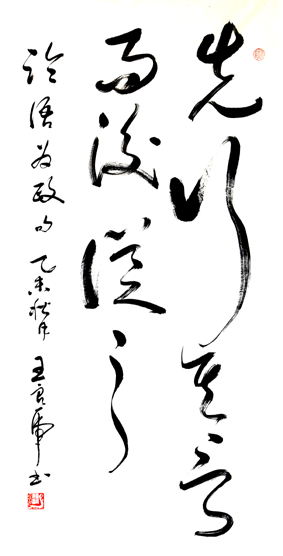 先行其言
而後從之
論語為政句 乙未秋月 王 書